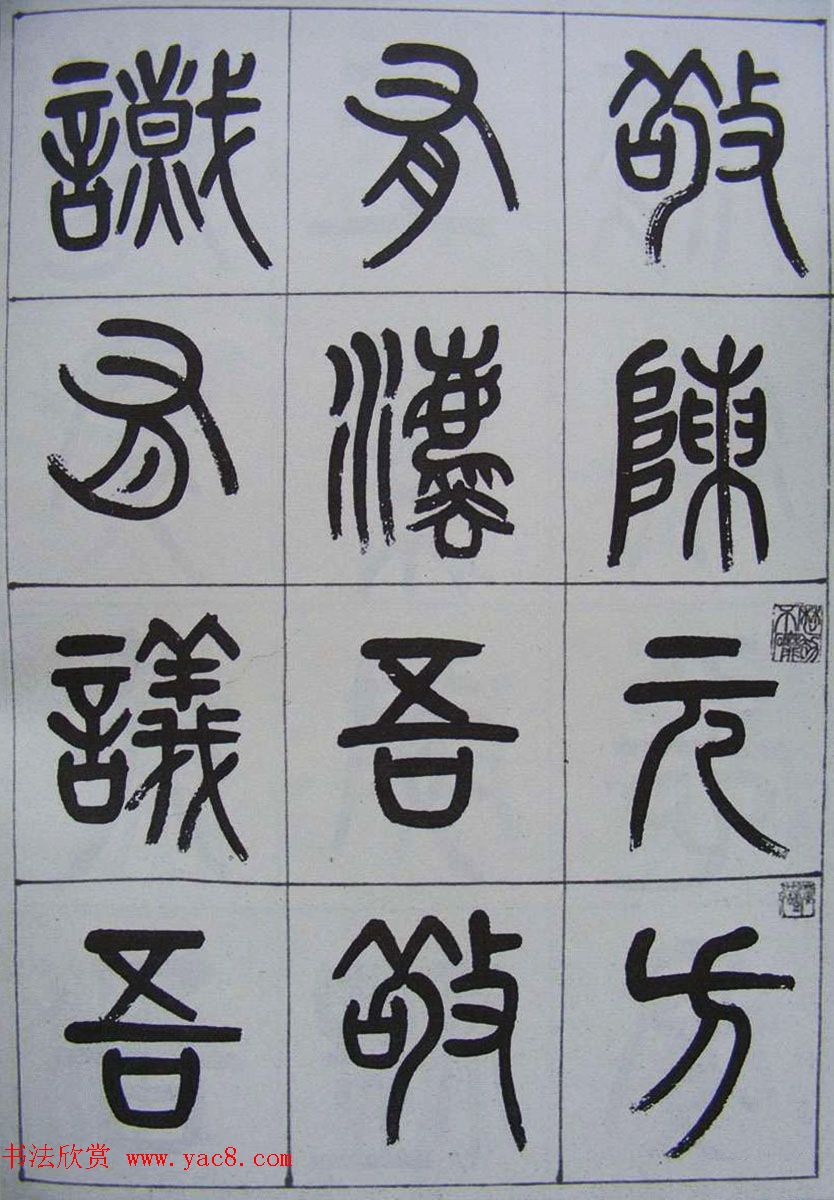 敬陳元方
有灋吾敬
識有議吾
书法欣赏 www.yac8.com